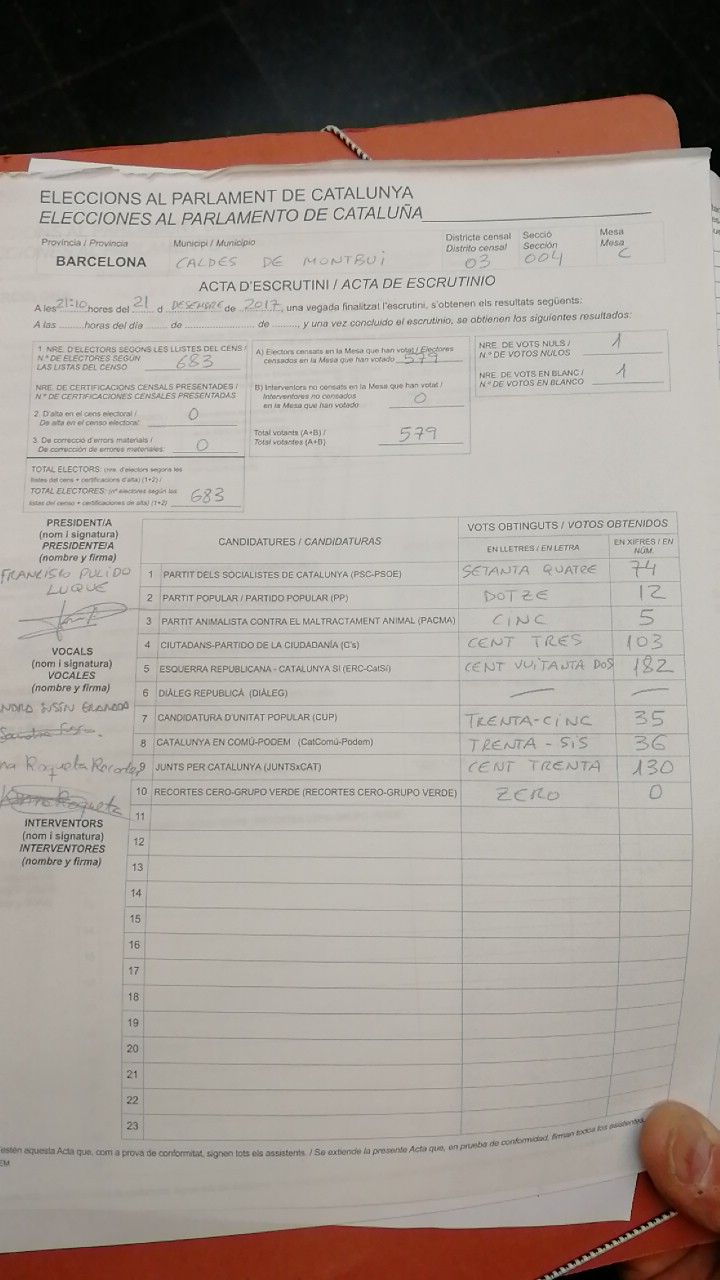 ELECCIONS AL PARLAMENT DE CATALUNYA
ELECCIONES AL PARLAMENTO DE CATALUÑA
Província / Provincia
BARCELONA
Municipi / Municipio
CALDES DE MONTBUI
Districte censal
Distrito censal
03
Secció
Sección
004
Mesa
Mesa
C
ACTA D'ESCRUTINI / ACTA DE ESCRUTINIO
A les 21:10 hores del 21 d DESEMBRE de 2017, una vegada finalitzat l'escrutini, s'obtenen els resultats següents:
A las ........ horas del día ...... de .......................... de ........, y una vez concluido el escrutinio, se obtienen los siguientes resultados:
1. NRE. D'ELECTORS SEGONS LES LLISTES DEL CENS /
N.º DE ELECTORES SEGÚN
LAS LISTAS DEL CENSO 683
NRE. DE CERTIFICACIONS CENSALS PRESENTADES /
N.º DE CERTIFICACIONES CENSALES PRESENTADAS
2. D'alta en el cens electoral / 0
De alta en el censo electoral:
3. De correcció d'errors materials /
De corrección de errores materiales: 0
TOTAL ELECTORS: (nre. d'electors segons les
llistes del cens + certificacions d'alta) (1+2) /
TOTAL ELECTORES: (nº electores según las
listas del censo + certificaciones de alta) (1+2) 683
A) Electors censats en la Mesa que han votat / Electores
censados en la Mesa que han votado 579
B) Interventors no censats en la Mesa que han votat /
Interventores no censados
en la Mesa que han votado 0
Total votants (A+B) /
Total votantes (A+B) 579
NRE. DE VOTS NULS /
N.º DE VOTOS NULOS 1
NRE. DE VOTS EN BLANC /
N.º DE VOTOS EN BLANCO 1
PRESIDENT/A
(nom i signatura)
PRESIDENTE/A
(nombre y firma)
FRANCISCO PULIDO
LUQUE
VOCALS
(nom i signatura)
VOCALES
(nombre y firma)
NDRA SUSÍN GRANADA
na Roqueta Recoder
INTERVENTORS
(nom i signatura)
INTERVENTORES
(nombre y firma)
CANDIDATURES / CANDIDATURAS
VOTS OBTINGUTS / VOTOS OBTENIDOS
EN LLETRES / EN LETRA
EN XIFRES / EN NÚM.
1 PARTIT DELS SOCIALISTES DE CATALUNYA (PSC-PSOE) SETANTA QUATRE 74
2 PARTIT POPULAR / PARTIDO POPULAR (PP) DOTZE 12
3 PARTIT ANIMALISTA CONTRA EL MALTRACTAMENT ANIMAL (PACMA) CINC 5
4 CIUTADANS-PARTIDO DE LA CIUDADANÍA (C's) CENT TRES 103
5 ESQUERRA REPUBLICANA - CATALUNYA SÍ (ERC-CatSí) CENT VUITANTA DOS 182
6 DIÀLEG REPUBLICÀ (DIÀLEG) — —
7 CANDIDATURA D'UNITAT POPULAR (CUP) TRENTA-CINC 35
8 CATALUNYA EN COMÚ-PODEM (CatComú-Podem) TRENTA-SIS 36
9 JUNTS PER CATALUNYA (JUNTSxCAT) CENT TRENTA 130
10 RECORTES CERO-GRUPO VERDE (RECORTES CERO-GRUPO VERDE) ZERO 0
11
12
13
14
15
16
17
18
19
20
21
22
23
estén aquesta Acta que, com a prova de conformitat, signen tots els assistents. / Se extiende la presente Acta que, en prueba de conformidad, firman todos los asistentes.
EM